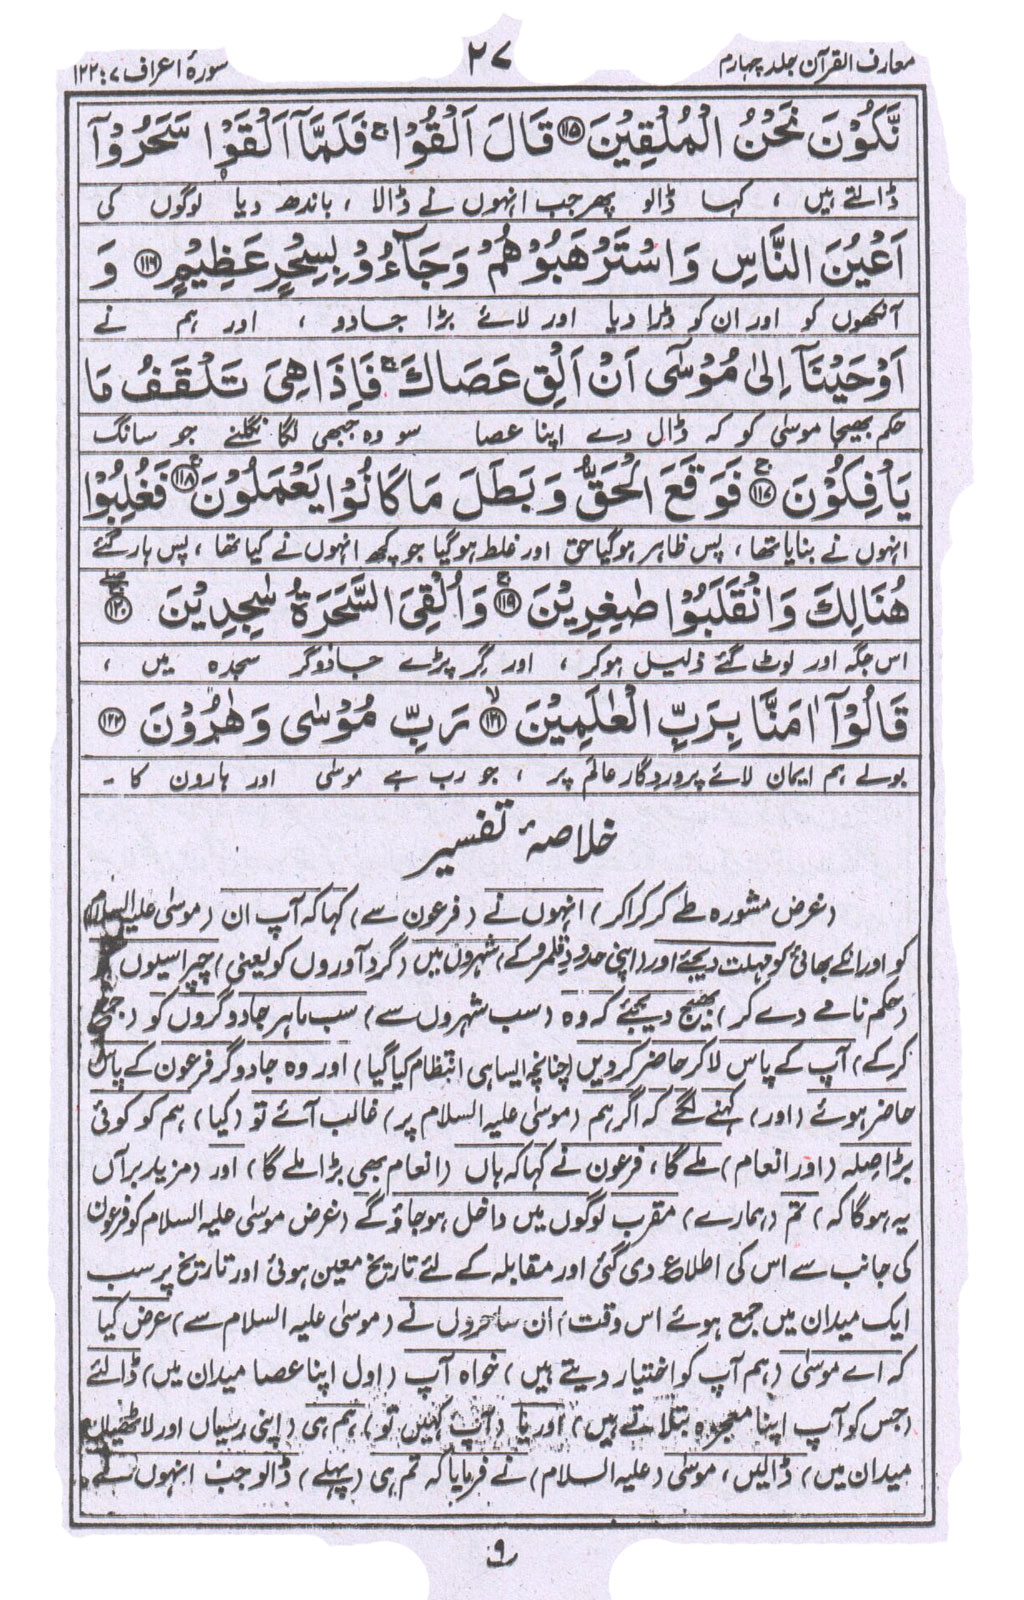 معارف القرآن جلد چہارم
۲۷
سورۂ اعراف ۷ : ۱۲۲
نَّكُوْنَ نَحْنُ الْمُلْقِيْنَ ﴿۱۱۵﴾ قَالَ اَلْقُوْا ۚ فَلَمَّآ اَلْقَوْا سَحَرُوْٓا
ڈالتے ہیں ، کہا ڈالو پھر جب انہوں نے ڈالا ، باندھ دیا لوگوں کی
اَعْيُنَ النَّاسِ وَاسْتَرْهَبُوْهُمْ وَجَآءُوْ بِسِحْرٍ عَظِيْمٍ ﴿۱۱۶﴾ وَ
آنکھوں کو اور ان کو ڈرا دیا اور لائے بڑا جادو ، اور ہم نے
اَوْحَيْنَآ اِلٰى مُوْسٰٓى اَنْ اَلْقِ عَصَاكَ ۚ فَاِذَا هِيَ تَلْقَفُ مَا
حکم بھیجا موسیٰ کو کہ ڈال دے اپنا عصا سو وہ جبھی لگا نگلنے جو سانگ
يَاْفِكُوْنَ ۚ﴿۱۱۷﴾ فَوَقَعَ الْحَقُّ وَبَطَلَ مَا كَانُوْا يَعْمَلُوْنَ ۚ﴿۱۱۸﴾ فَغُلِبُوْا
انہوں نے بنایا تھا ، پس ظاہر ہوگیا حق اور غلط ہوگیا جو کچھ انہوں نے کیا تھا ، پس ہار گئے
هُنَالِكَ وَانْقَلَبُوْا صٰغِرِيْنَ ۚ﴿۱۱۹﴾ وَاُلْقِيَ السَّحَرَةُ سٰجِدِيْنَ ۖۚ﴿۱۲۰﴾
اس جگہ اور لوٹ گئے ذلیل ہوکر ، اور گر پڑے جادوگر سجدہ میں ،
قَالُوْٓا اٰمَنَّا بِرَبِّ الْعٰلَمِيْنَ ۙ﴿۱۲۱﴾ رَبِّ مُوْسٰى وَهٰرُوْنَ ﴿۱۲۲﴾
بولے ہم ایمان لائے پروردگار عالم پر ، جو رب ہے موسیٰ اور ہارون کا ۔
خلاصۂ تفسیر
(غرض مشورہ طے کر کرا کر) انہوں نے (فرعون سے) کہا کہ آپ ان (موسیٰ علیہ السلام)
کو اور انکے بھائی کو مہلت دیجئے اور (اپنی حدودِ قلمرو کے) شہروں میں (گرد آوروں کو یعنی) چپراسیوں کو
(حکم نامے دے کر) بھیج دیجئے کہ وہ (سب شہروں سے) سب ماہر جادوگروں کو (جمع
کرکے) آپ کے پاس لا کر حاضر کردیں (چنانچہ ایسا ہی انتظام کیا گیا) اور وہ جادوگر فرعون کے پاس
حاضر ہوئے (اور) کہنے لگے کہ اگر ہم (موسیٰ علیہ السلام پر) غالب آئے تو (کیا) ہم کو کوئی
بڑا صلہ (اور انعام) ملے گا ، فرعون نے کہا کہ ہاں (انعام بھی بڑا ملے گا) اور (مزید برآں
یہ ہوگا کہ) تم (ہمارے) مقرب لوگوں میں داخل ہوجاؤ گے (غرض موسیٰ علیہ السلام کو فرعون
کی جانب سے اس کی اطلاع دی گئی اور مقابلہ کے لئے تاریخ معین ہوئی اور تاریخ پر سب
ایک میدان میں جمع ہوئے اس وقت) ان ساحروں نے (موسیٰ علیہ السلام سے) عرض کیا
کہ اے موسیٰ (ہم آپ کو اختیار دیتے ہیں) خواہ آپ (اول اپنا عصا میدان میں) ڈالئے
(جس کو آپ اپنا معجزہ بتلاتے ہیں) اور یا (آپ کہیں تو) ہم ہی (اپنی رسیاں اور لاٹھیاں
میدان میں) ڈالیں ، موسیٰ (علیہ السلام) نے فرمایا کہ تم ہی (پہلے) ڈالو جب انہوں نے